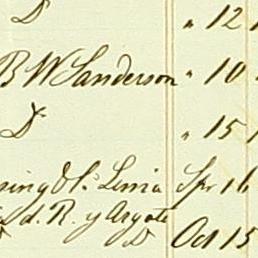 D " 12
B W Sanderson " 10
D " 15
Lima 16
d. R. y Argote
D Oct 15